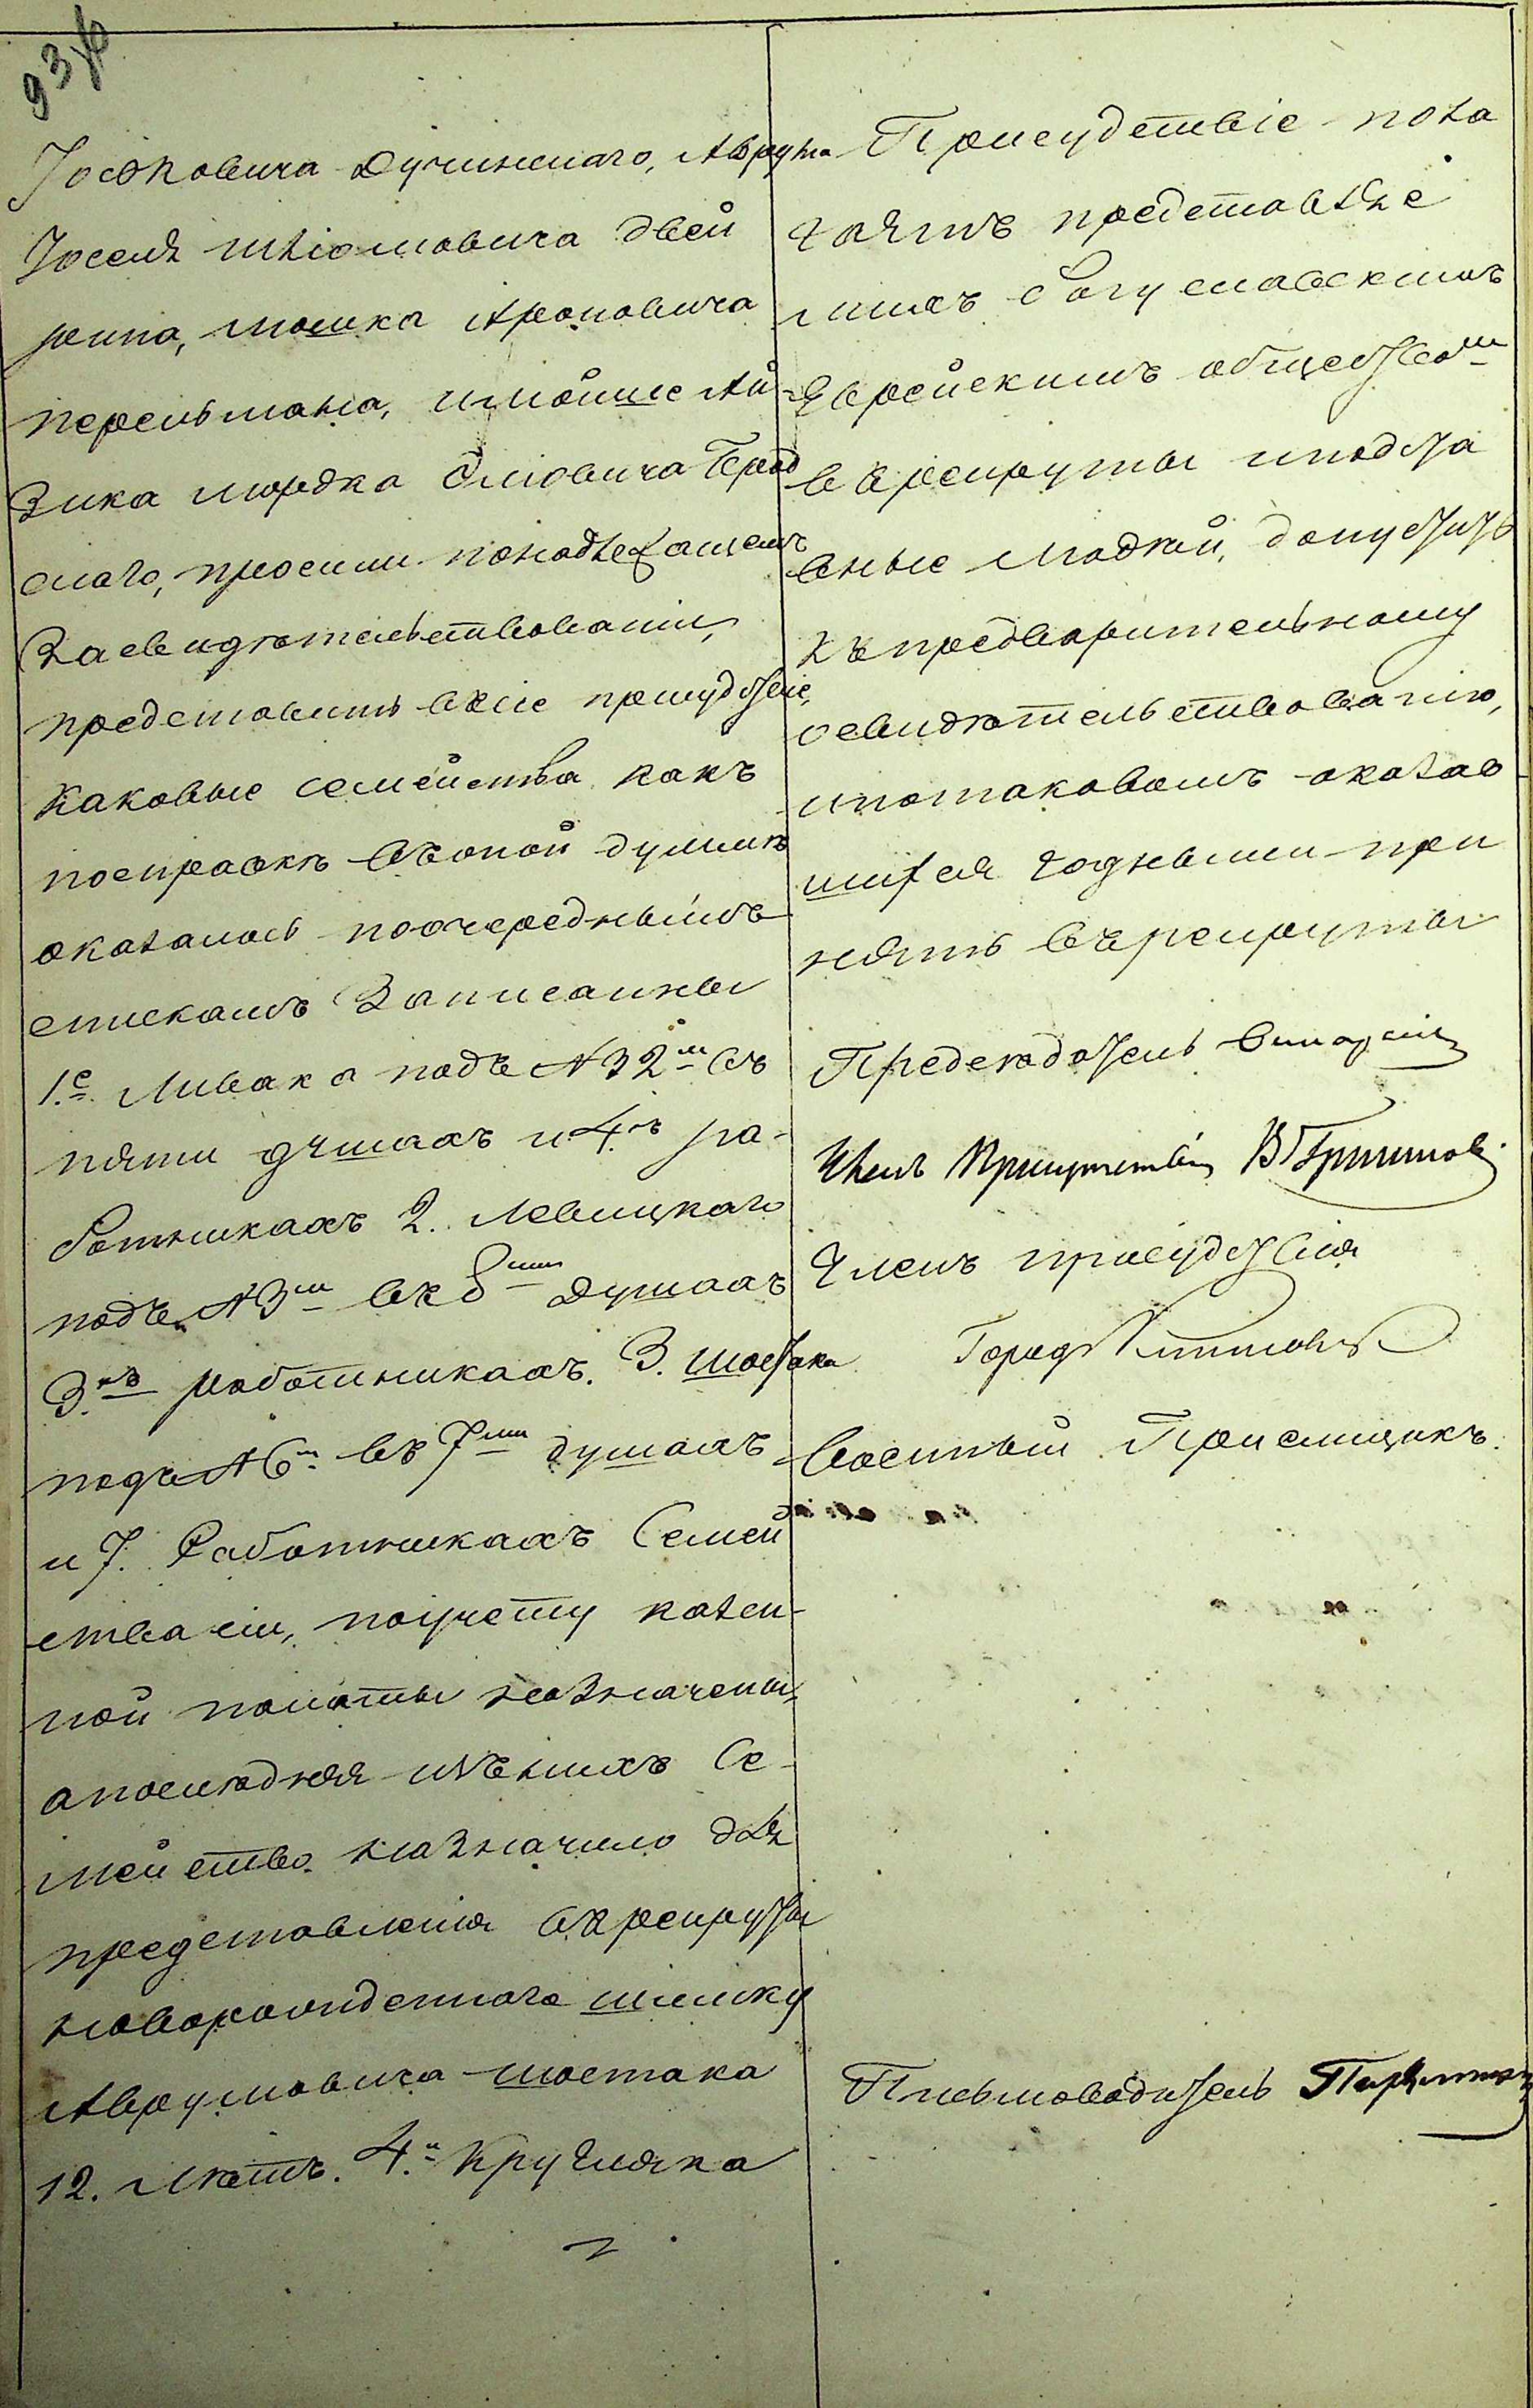 93
Іоськовича Дучинскаго, Аврума
Іоселя Шліомовича Двей
рина, Мошка Ароновича
Перельмана, и Мойше Ай-
зика Мордка Элювича Брод
скаго, просили понадлежащемъ
Засвидѣтельствованіи,
представить вксіе присудствіе,
Каковые семейства какъ
посправкѣ въоной думикѣ
оказалось поочереднымъ
спискамъ Записанны
1.е Ливака подъ №32м въ
пяти душахъ и 4.хъ ра-
ботникахъ 2. Левицкаго
подъ №3м вк 8ми душахъ
3.хъ работникахъ. 3. Шостака
подъ №6м въ 7ми душахъ
и 7. Работникахъ Семей
ства сіи, поучету казен-
ной палаты назначены,
апослѣдняя изънихъ Се-
мейство назначило для
представленія вкрекруты
новоральиденнаго Шимку
Аврумовича Шостака
12. лѣтъ. 4.й Кругляка
Присудствіе пола
гаятъ представляе
михъ Богуславскимъ
Еврейскимъ обществом
ввкрекруты иподста
вные людкй, допустить
къпредварительному
освидѣтельствованію,
ипотаковомъ оказав
шихся годными при
нять въ рекруты
Предсѣдатель
Членъ Присутствія В Гришинов
Членъ присудствія
Город
Военный Приемщикъ.
Письмоводитель